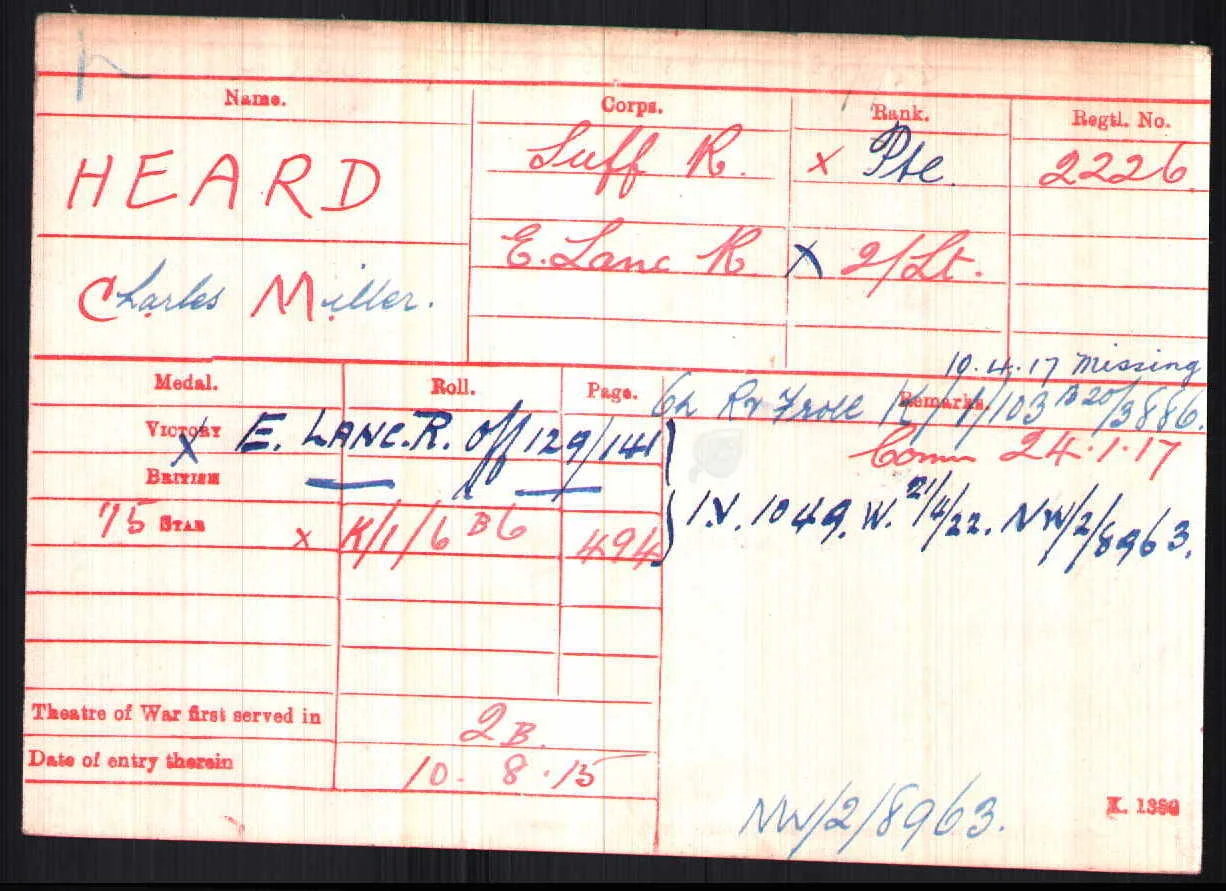 Name. Corps. Rank. Regtl. No.
HEARD Suff R. x Pte. 2226.
E. Lanc R. X 2/Lt.
Charles Miller.
10.4.17 Missing
Medal. Roll. Page. Remarks.
K/1/103 B20/3886.
VICTORY X E. LANC. R. Off 129/141
Comm 24.1.17
BRITISH
I.V. 1049. W. 21/4/22. NW/2/8963.
'15 STAR x K/1/6 B6 494
Theatre of War first served in 2B.
Date of entry therein 10. 8. 15
NW/2/8963.
K. 1380